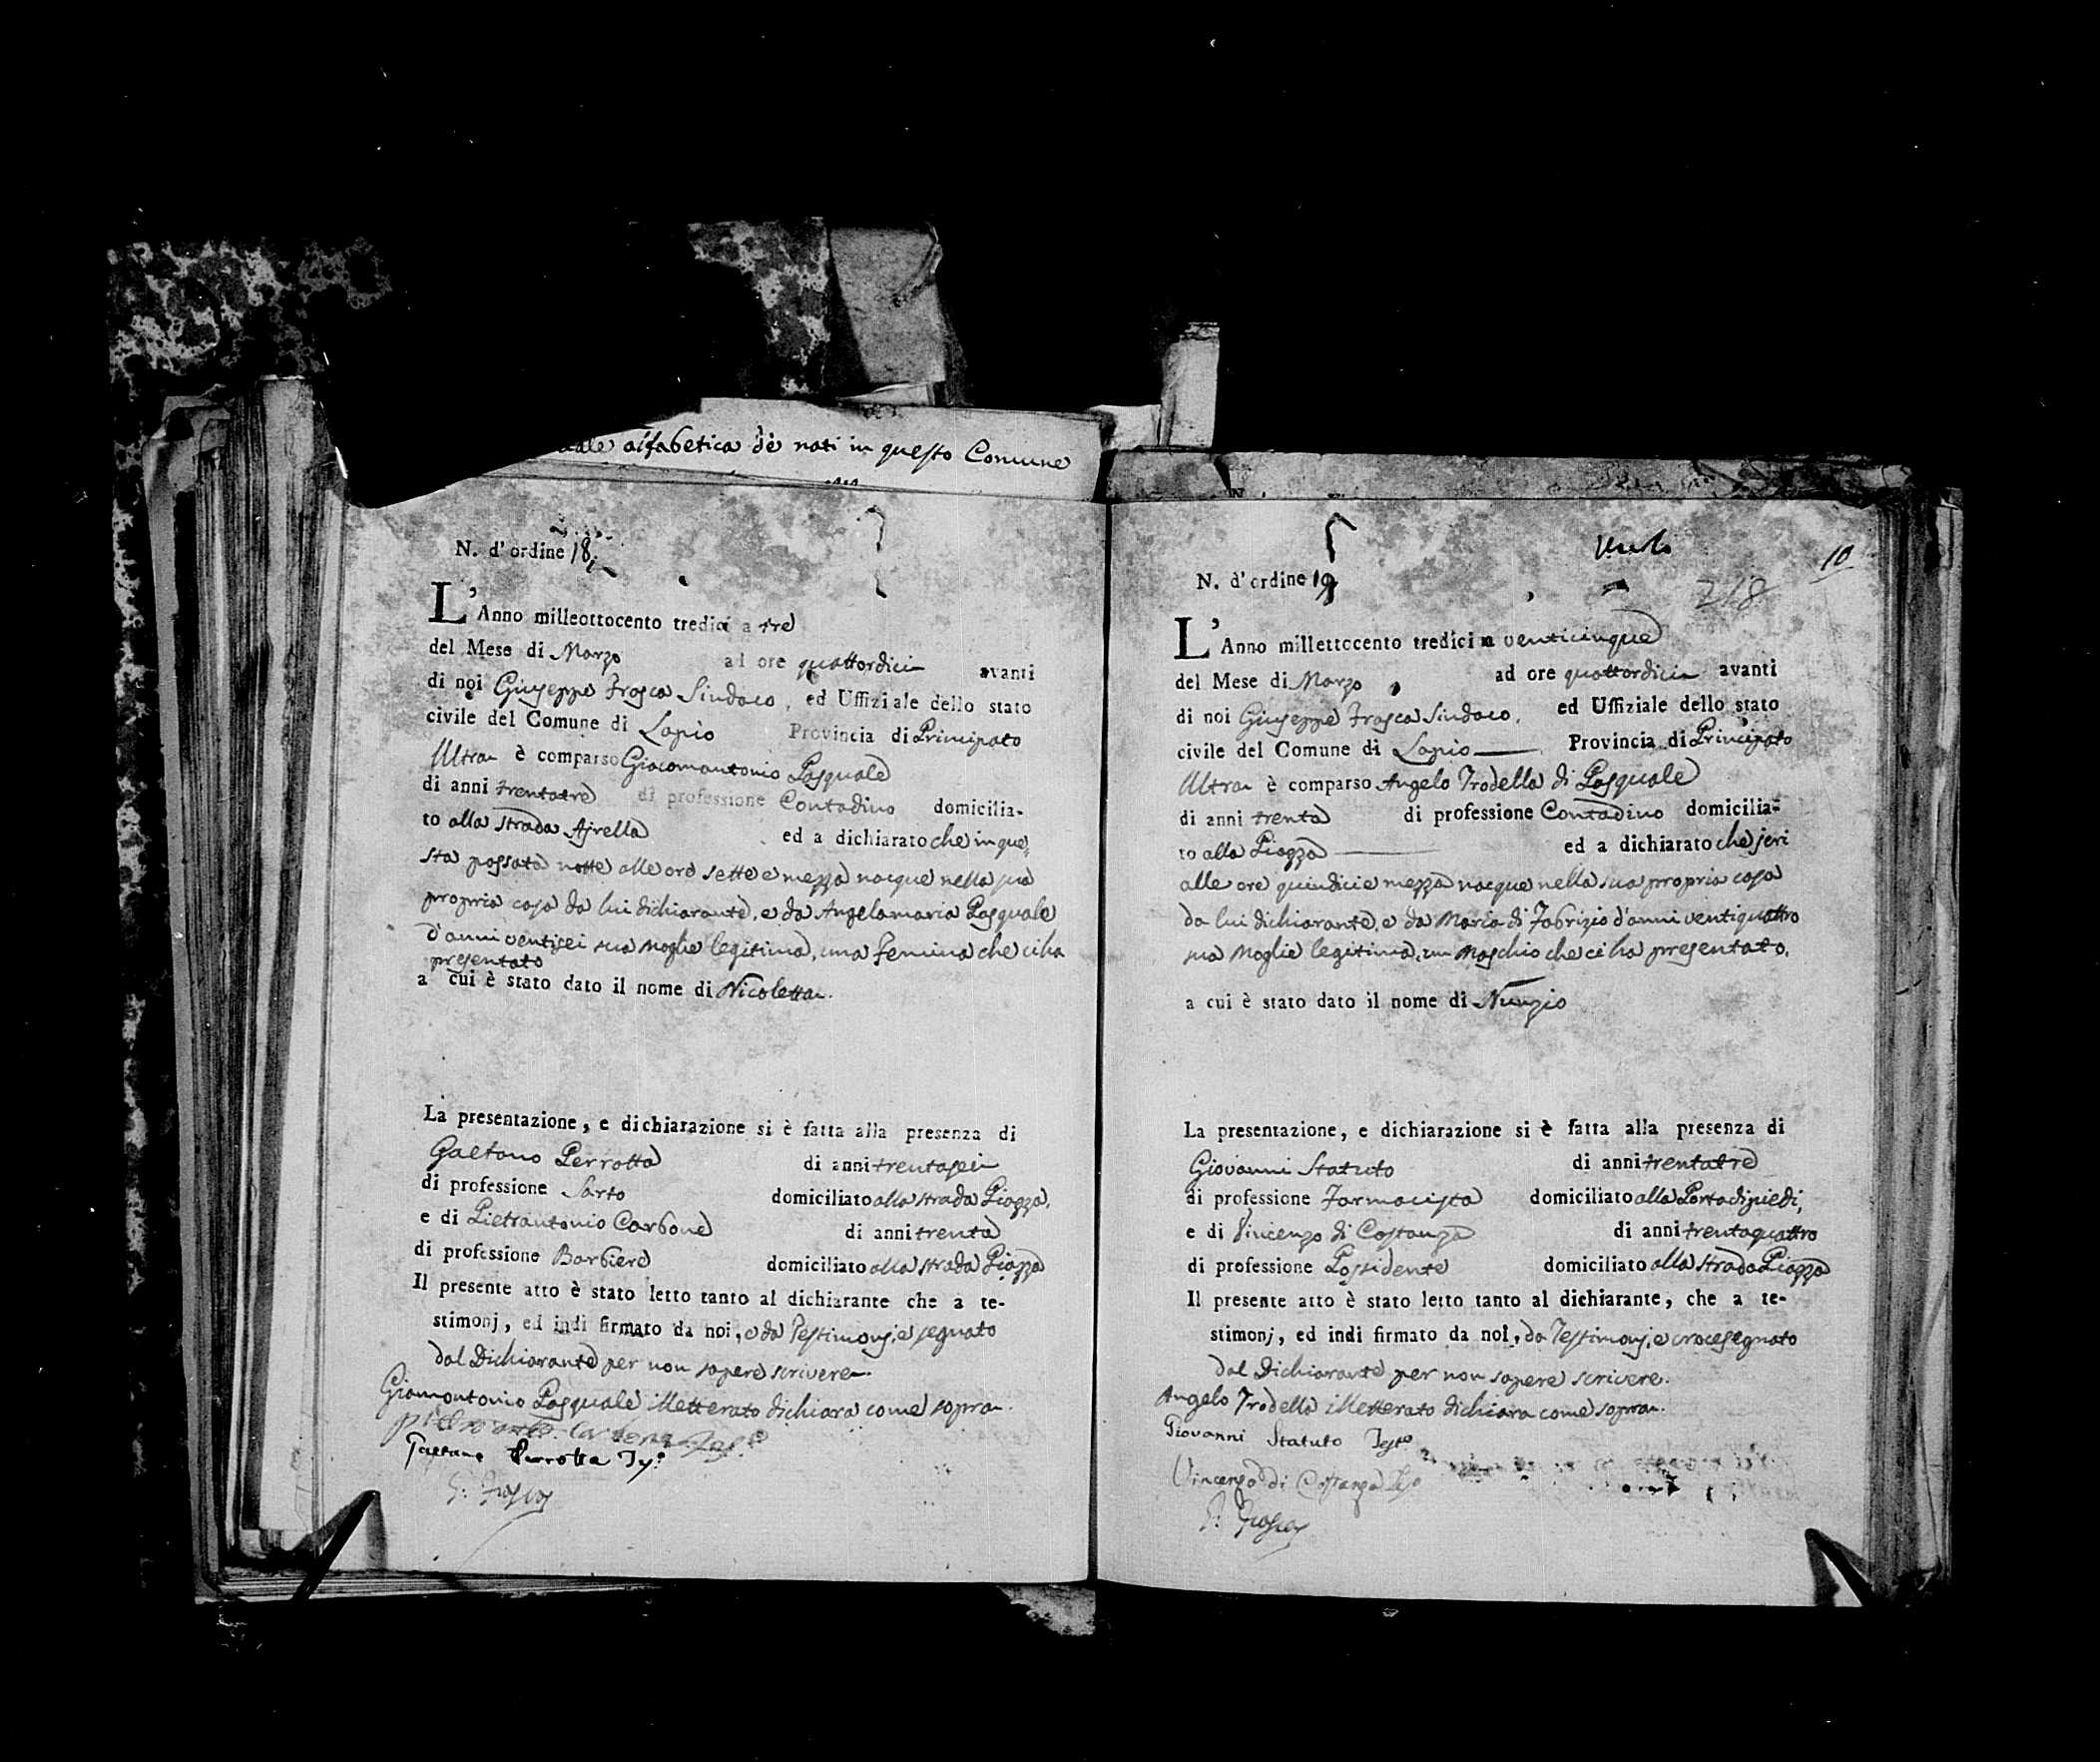 alfabetica de nati in questo Comune
N. d'ordine 18
L'Anno milleottocento tredici a tre
del Mese di Marzo ad ore quattordici avanti
di noi Giuseppe Frasca Sindaco, ed Uffiziale dello stato
civile del Comune di Lapio Provincia di Principato
Ultra è comparso Giacomantonio Pasquale
di anni trentatre di professione Contadino domicilia-
to alla strada Ajrella ed a dichiarato che in que=
sta passata notte alle ore sette e mezza nacque nella sua
propria casa da lui dichiarante, e da Angelamaria Pasquale
d'anni ventisei sua moglie legitima, una femina che ci ha
presentato
a cui è stato dato il nome di Nicoletta.
La presentazione, e dichiarazione si è fatta alla presenza di
Gaetano Perrotta di anni trentasei
di professione Sarto domiciliato alla strada Piazza,
e di Pietrantonio Carbone di anni trenta
di professione Barbiere domiciliato alla strada Piazza
Il presente atto è stato letto tanto al dichiarante che a te-
stimonj, ed indi firmato da noi, e da Testimonj, e segnato
dal Dichiarante per non sapere scrivere.
Giamontonio Pasquale illetterato dichiara come sopra.
Gaetano Perrotta
G: Frasca
10
218
N. d'ordine 19
L'Anno millettocento tredici a venticinque
del Mese di Marzo ad ore quattordici avanti
di noi Giuseppe Frasca Sindaco, ed Uffiziale dello stato
civile del Comune di Lapio Provincia di Principato
Ultra è comparso Angelo Trodella di Pasquale
di anni trenta di professione Contadino domicilia-
to alla Piazza ed a dichiarato che jeri
alle ore quindici e mezza nacque nella sua propria casa
da lui dichiarante, e da Maria di Fabrizio d'anni ventiquattro
sua Moglie legitima, un Maschio che ci ha presentato,
a cui è stato dato il nome di Nunzio
La presentazione, e dichiarazione si è fatta alla presenza di
Giovanni Statuto di anni trentatre
di professione Farmacista domiciliato alla Porta di piedi,
e di Vincenzo di Costanza di anni trentaquattro
di professione Possidente domiciliato alla strada Piazza
Il presente atto è stato letto tanto al dichiarante, che a te-
stimonj, ed indi firmato da noi, da Testimonj, e crocesegnato
dal Dichiarante per non sapere scrivere.
Angelo Trodella illetterato dichiara come sopra.
Giovanni Statuto Testo
Vincenzo di Costanza
G: Frasca